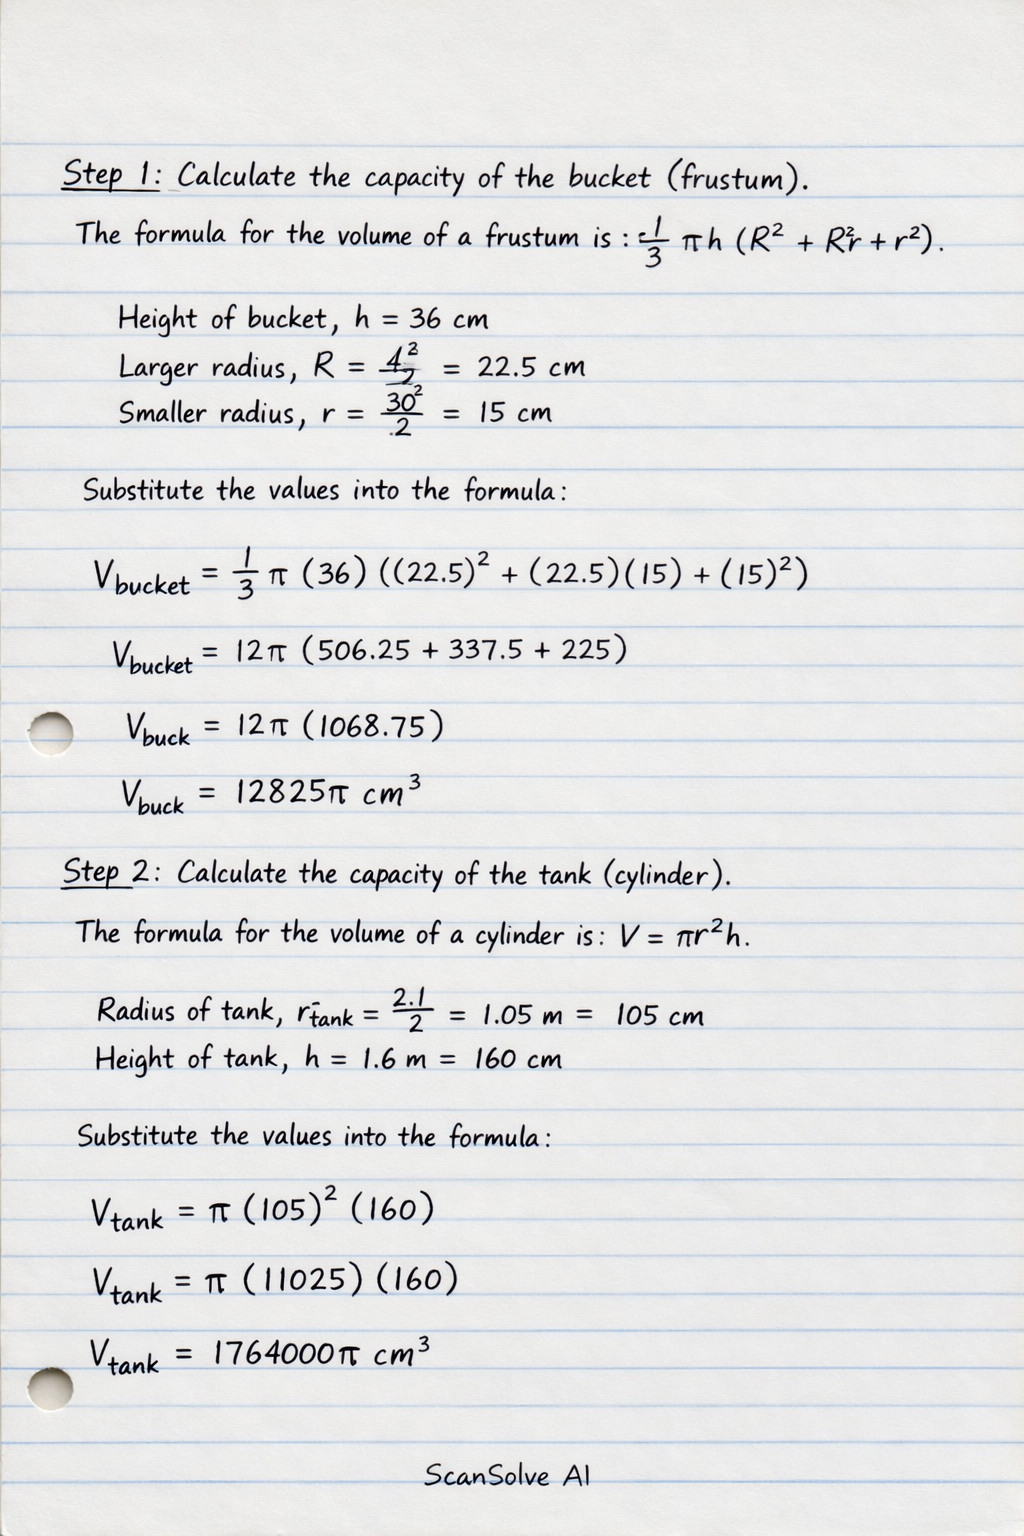 Step 1: Calculate the capacity of the bucket (frustum).
The formula for the volume of a frustum is : 1/3 πh (R² + R²r + r²).
Height of bucket, h = 36 cm
Larger radius, R = 4²/2 = 22.5 cm
Smaller radius, r = 30²/.2 = 15 cm
Substitute the values into the formula:
Vbucket = 1/3 π (36) ((22.5)² + (22.5)(15) + (15)²)
Vbucket = 12π (506.25 + 337.5 + 225)
Vbuck = 12π (1068.75)
Vbuck = 12825π cm³
Step 2: Calculate the capacity of the tank (cylinder).
The formula for the volume of a cylinder is: V = πr²h.
Radius of tank, rtank = 2.1/2 = 1.05 m = 105 cm
Height of tank, h = 1.6 m = 160 cm
Substitute the values into the formula:
Vtank = π (105)² (160)
Vtank = π (11025) (160)
Vtank = 1764000π cm³
ScanSolve AI